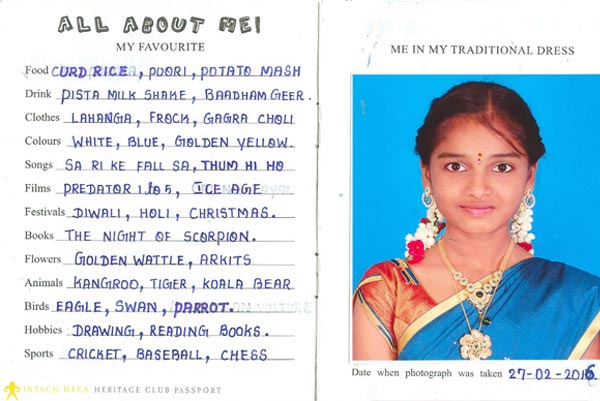 ALL ABOUT ME!
MY FAVOURITE
Food CURD RICE, POORI, POTATO MASH
Drink PISTA MILK SHAKE, BAADHAM GEER.
Clothes LAHANGA, FROCK, GAGRA CHOLI
Colours WHITE, BLUE, GOLDEN YELLOW.
Songs SA RI KE FALL SA, THUM HI HO
Films PREDATOR 1 to 5, ICE AGE
Festivals DIWALI, HOLI, CHRISTMAS.
Books THE NIGHT OF SCORPION.
Flowers GOLDEN WATTLE, ARKITS
Animals KANGROO, TIGER, KOALA BEAR
Birds EAGLE, SWAN, PARROT.
Hobbies DRAWING, READING BOOKS.
Sports CRICKET, BASEBALL, CHESS
INTACH HECS HERITAGE CLUB PASSPORT
ME IN MY TRADITIONAL DRESS
Date when photograph was taken 27-02-2016.